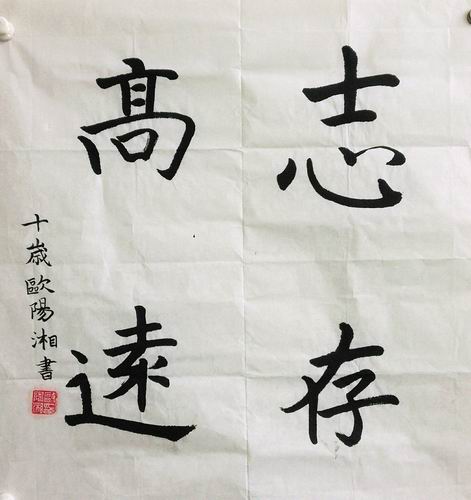 志存
高遠
十歳歐陽湘書